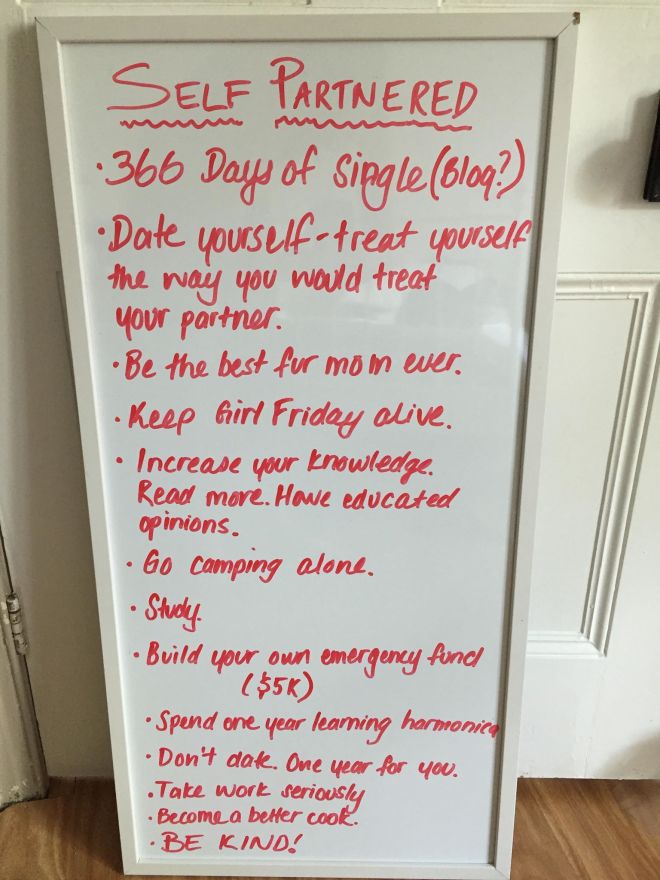 SELF PARTNERED
• 366 Days of Single (Blog?)
• Date yourself - treat yourself
the way you would treat
your partner.
• Be the best fur mom ever.
• Keep Girl Friday alive.
• Increase your knowledge.
Read more. Have educated
opinions.
• Go camping alone.
• Study.
• Build your own emergency fund
($5K)
• Spend one year learning harmonica
• Don't date. One year for you.
• Take work seriously
• Become a better cook.
• BE KIND!